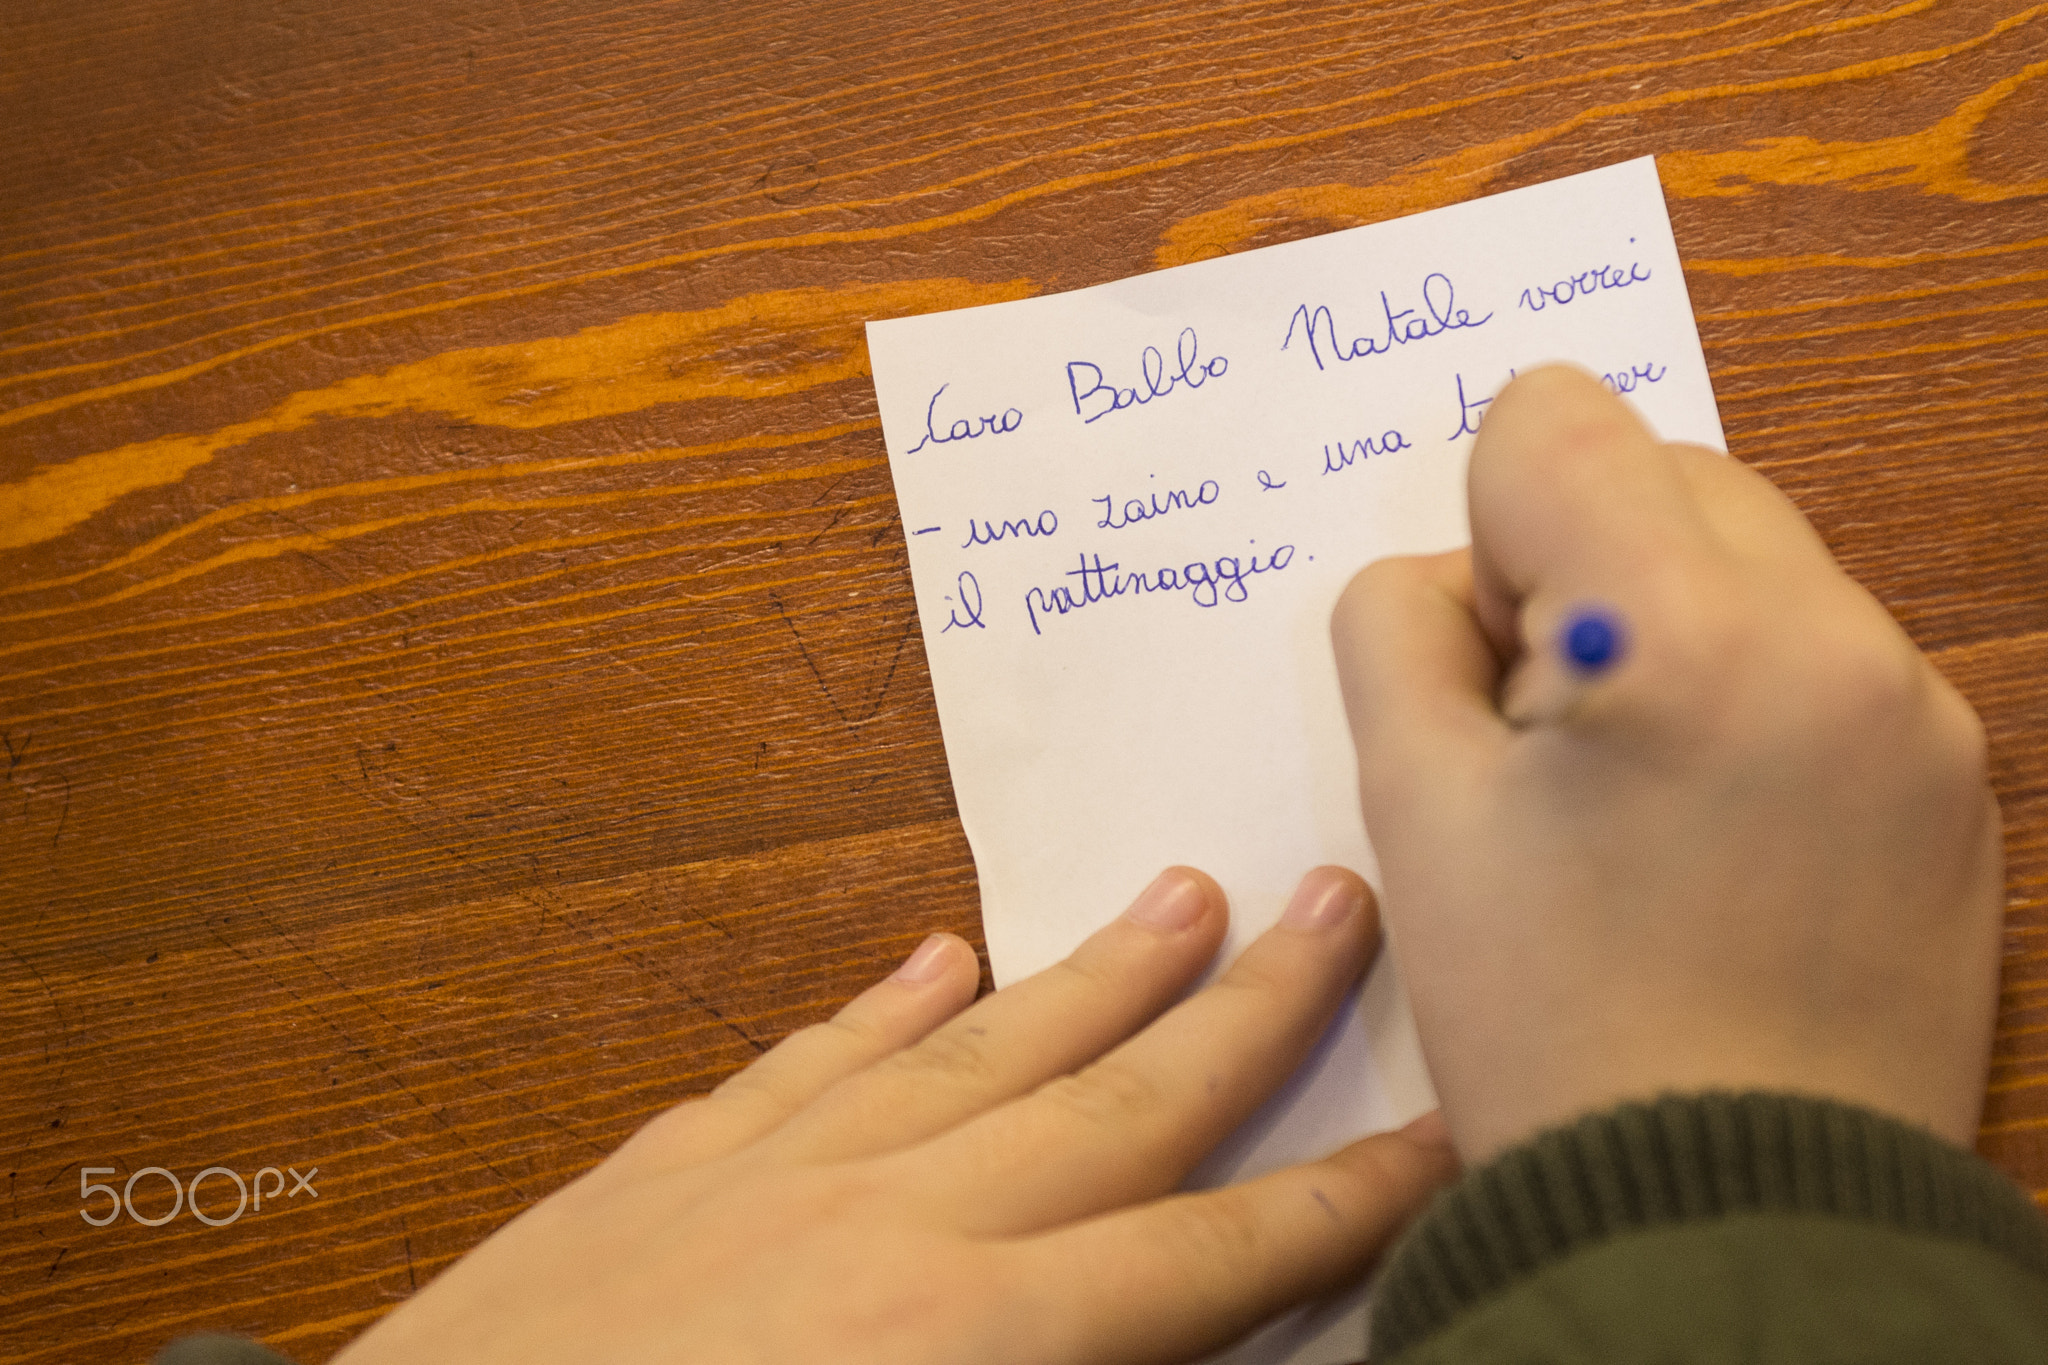 Caro Babbo Natale vorrei
- uno zaino e una per
il pattinaggio.
500px